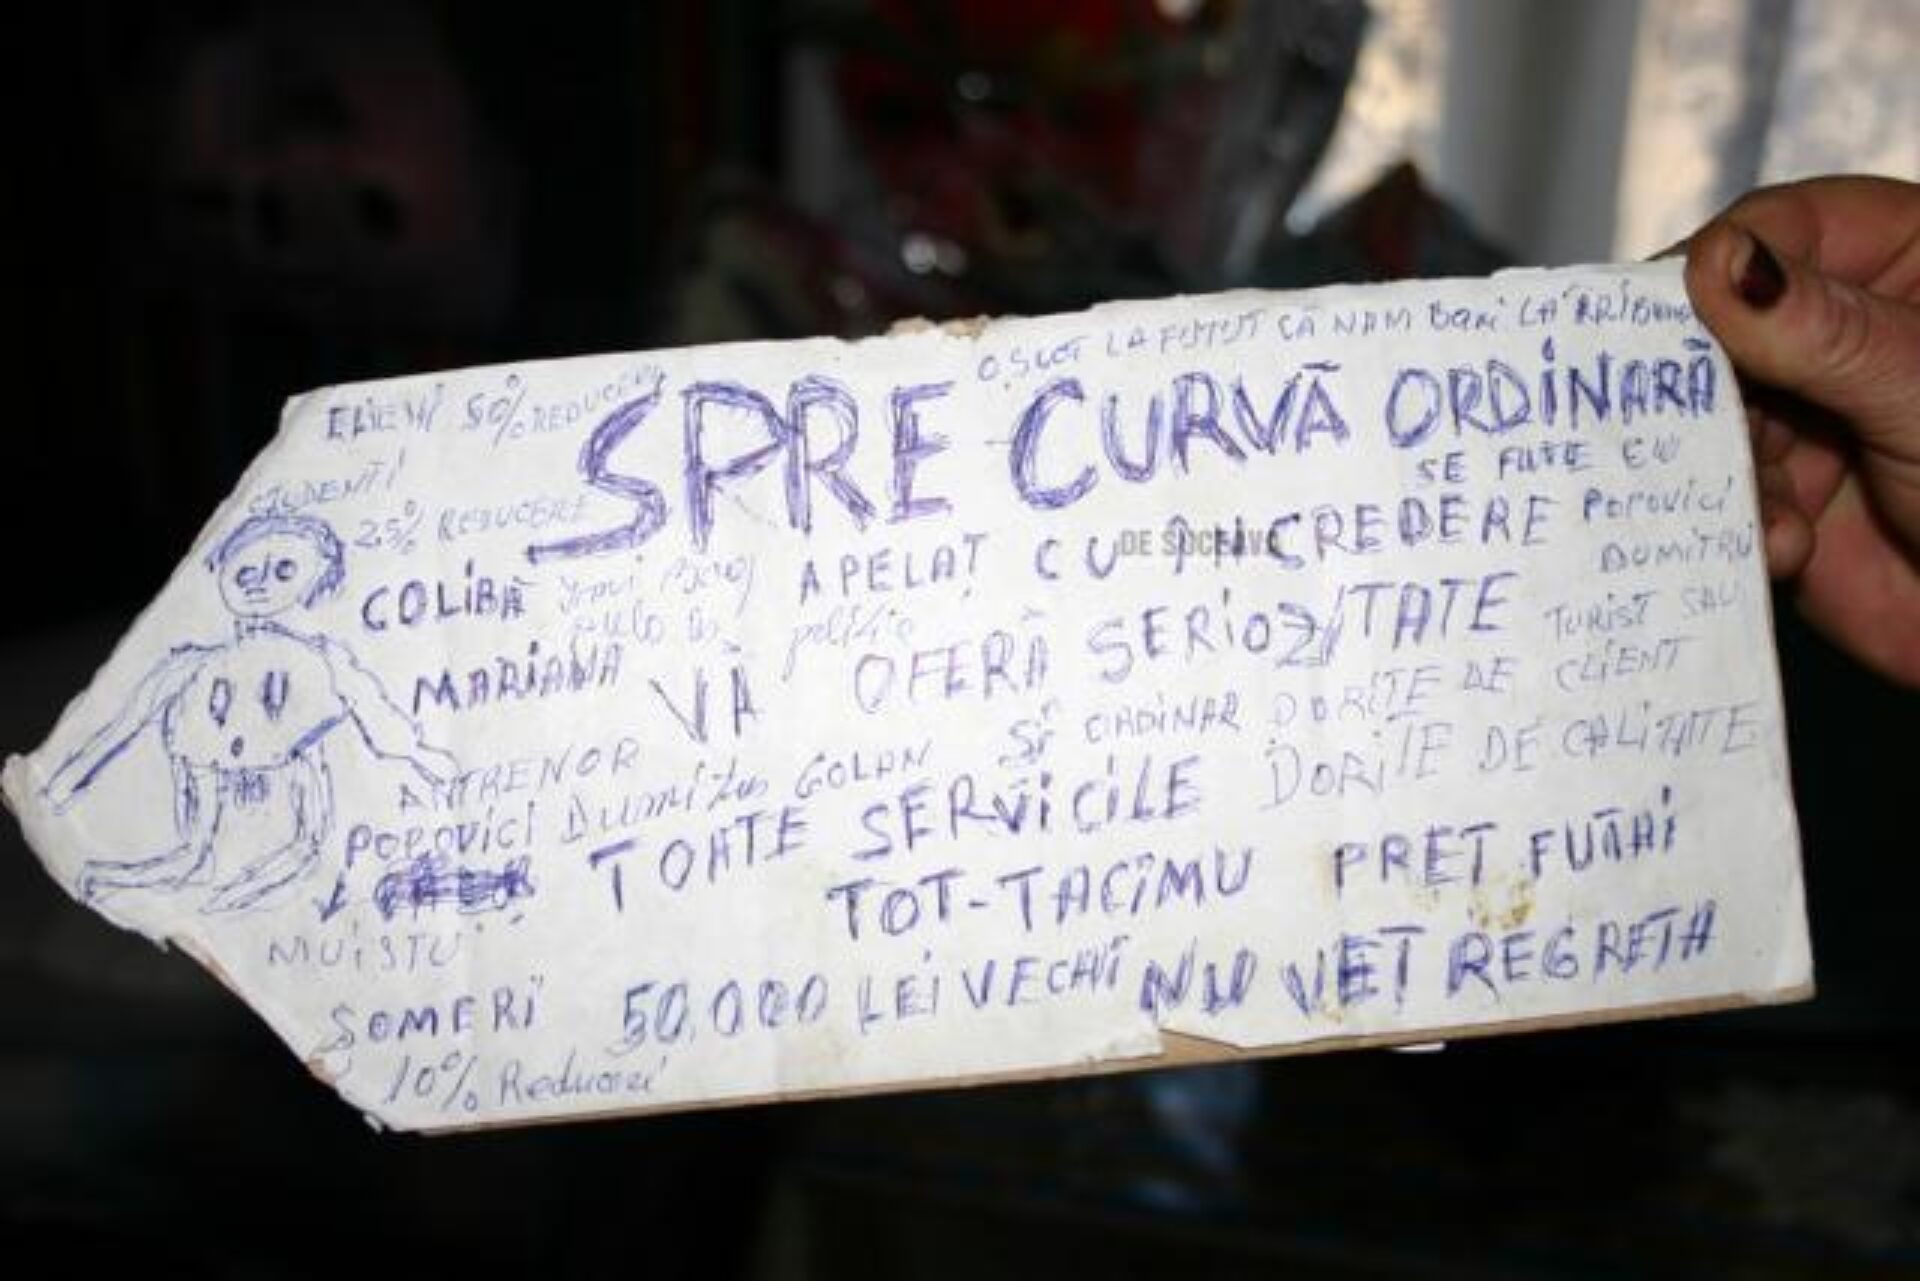 O SCOT LA FUTUT CĂ NAM Bani LA
ELEVI 50% REDUCERI
SPRE CURVĂ ORDINARĂ
STUDENTI
25% REDUCERE
SE FUTE CU
POPOVICI
DUMITRU
COLIBĂ
APELAȚ CU ÎNCREDERE
DE SUCEAVA
poliție
MARIANA VĂ OFERĂ SERIOZITATE
TURIST SAU
CLIENT
ANTRENOR
POPOVICI Dumitru GOLAN Si ORDINAR DORITE DE
TOATE SERVICILE DORITE DE CALITATE
MUISTU
TOT-TACÎMU PREȚ FUTAI
ȘOMERI 50.000 LEI VECHI NU VEȚ REGRETA
10% Reduceri